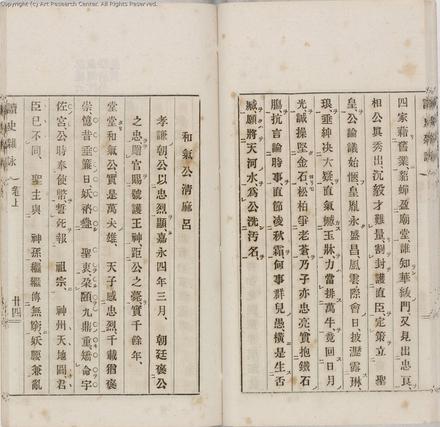 Copyright (C) Art Research Center. All Rights Reserved.
四家藉舊業、貂蟬盈朝堂、誰知華紱門、又見出忠良、
相公眞秀出、沉毅才難量、割封護直臣、定策立 聖
皇、公論議始愜、皇胤永盛昌、風雲際會日、披瀝露琳
琅、垂紳决大疑、直氣撼玉牀、力當排萬牛、竟回日月
光、誠操堅金石、松柏爭老蒼、乃子亦忠亮、實抱鐵石
膓、抗言論時事、直節凌秋霜、何事群兒愚、橫是生舌
誠願將天河水、爲公洗汚名、
和氣公清麻呂
孝謙朝公以忠烈顯、嘉永四年三月、 朝廷褒公
之忠、贈官賜號護王神、距公之薨、實千餘年、
堂堂和氣公、實是萬夫雄、 天子感忠烈、千載猶褒
崇、憶昔垂簾日、妖衲 聖衷、梁 九鼎重、矯命宇
佐宮、公時奉使幣、誓死報 祖宗、 神州天地闢、君
臣已不同、 聖主與 神孫、繼繼傳無窮、妖腰 亂
讀史雜詠 卷上 廿四